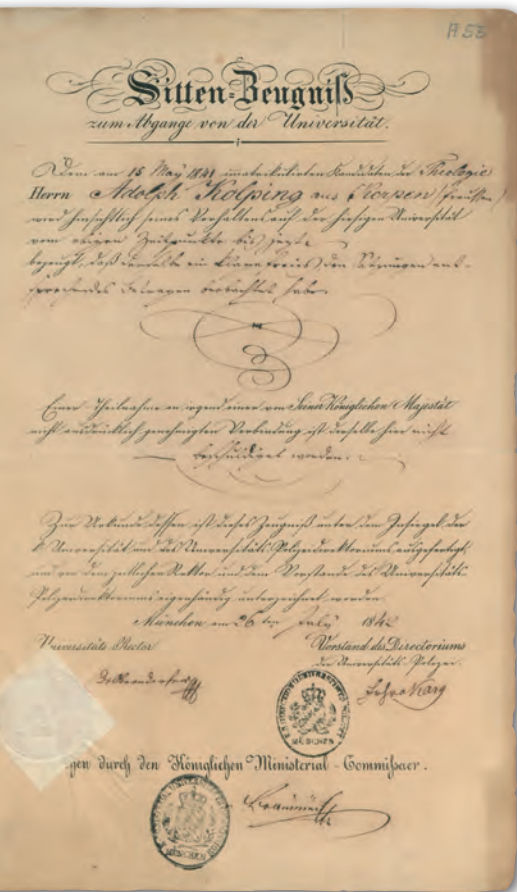 A 53
Sitten-Zeugniß
zum Abgange von der Universität.
Dem am 15 May 1841 immatrikulirten Kandidaten der Theologie
Herrn Adolph Kolping aus Kerpen (Preußen)
wird hinsichtlich seines Verhaltens auf der hiesigen Universität
vom obigen Zeitpunkte bis heute
bezeugt, daß derselbe ein den Satzungen ent-
sprechendes Betragen beobachtet habe.
Einer Theilnahme an irgend einer von Seiner Königlichen Majestät
nicht ausdrücklich genehmigten Verbindung ist derselbe hier nicht
beschuldiget worden.
Zur Urkunde dessen ist dieses Zeugniß unter dem Insiegel der
k. Universität und des Universitäts-Polizeidirektoriums ausgefertigt,
und von dem zeitlichen Rektor und dem Vorstande des Universitäts-
Polizeidirektoriums eigenhändig unterzeichnet worden.
München am 26 ten July 1842
Universitäts-Rector
Vorstand des Directoriums
der Universitäts-Polizei.
MÜNCHEN
gen durch den Königlichen Ministerial-Commissaer.
MÜNCHEN